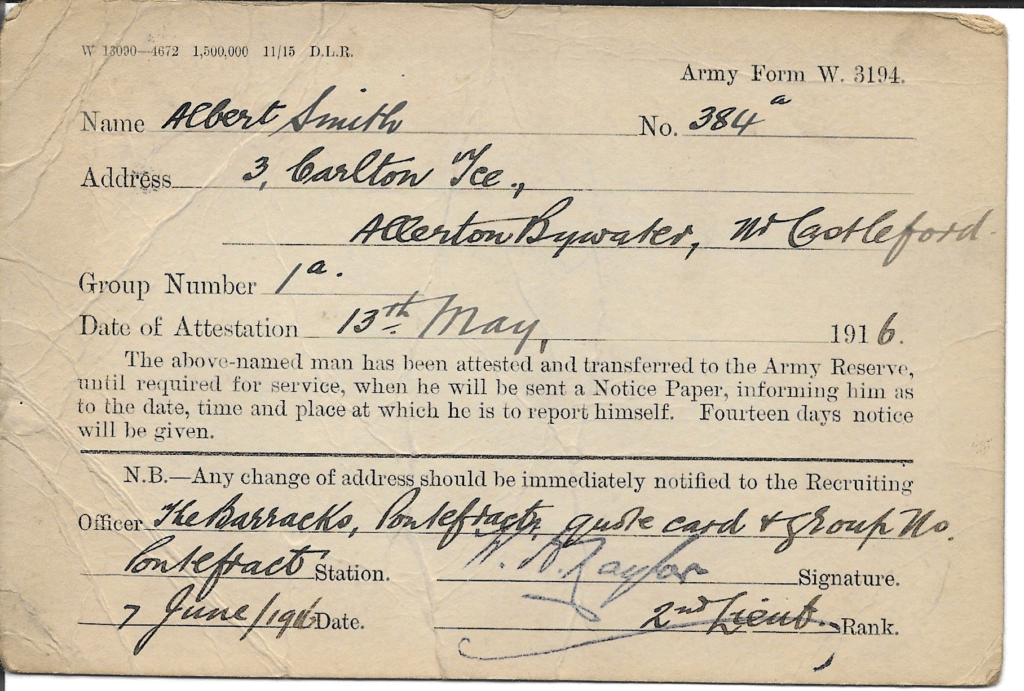 W 13090—4672 1,500,000 11/15 D.L.R.
Army Form W. 3194.
Name Albert Smith No. 384 a
Address 3, Carlton Tce.,
Allerton Bywater, Nr Castleford.
Group Number 1 a.
Date of Attestation 13th May, 1916.
The above-named man has been attested and transferred to the Army Reserve,
until required for service, when he will be sent a Notice Paper, informing him as
to the date, time and place at which he is to report himself. Fourteen days notice
will be given.
N.B.—Any change of address should be immediately notified to the Recruiting
Officer The Barracks, Pontefract, quote card & group No.
Pontefract Station. Signature.
7 June/1916 Date. 2nd Lieut. Rank.